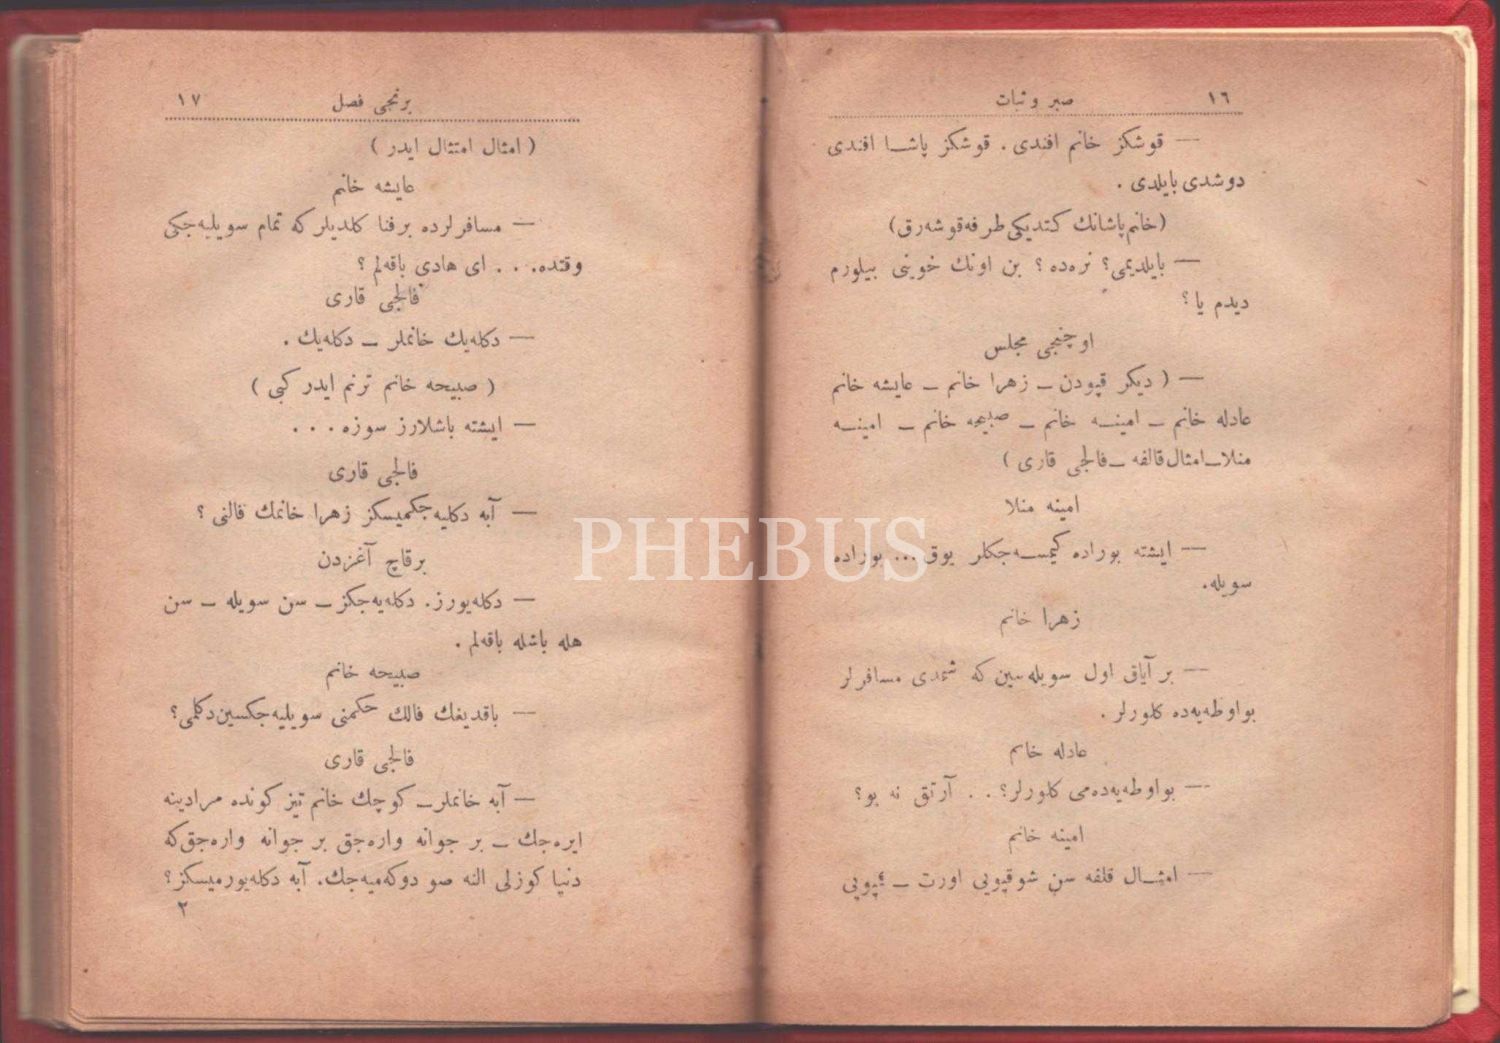 ١٦ صبر و ثبات
— قوشكز خانم افندى . قوشكز پاشا افندى
دوشدى بايلدى .
(خانم پاشانك كتديكى طرفه قوشه‌رق)
— بايلديمى؟ نره‌ده؟ بن اونك خوينى بيلورم
ديدم يا؟
اوچنجى مجلس
— ( ديكر قپودن ــ زهرا خانم ــ عايشه خانم
عادله خانم ــ امينه خانم ــ صبيحه خانم ــ امينه
منلا ــ امثال قالفه ــ فالجى قارى )
امينه منلا
— ايشته بوراده كيمسه‌جكلر يوق... بوراده
سويله.
زهرا خانم
— بر آياق اول سويله‌سين كه شمدى مسافرلر
بو اوطه‌يه‌ده كلورلر .
عادله خانم
— بو اوطه‌يه‌ده‌مى كلورلر؟ . . آرتق نه بو؟
امينه خانم
— امثال قلفه سن شو قپويى اورت ــ
١٧ برنجى فصل
( امثال امتثال ايدر )
عايشه خانم
— مسافرلرده برفنا كلديلر كه تمام سويليه‌جكى
وقتده. . . اى هادى باقه‌لم ؟
فالجى قارى
— دكله‌يك خانملر ــ دكله‌يك .
( صبيحه خانم ترنم ايدر كبى )
— ايشته باشلارز سوزه . . .
فالجى قارى
— آبه دكليه‌جكميسكز زهرا خانمك فالنى ؟
برقاچ آغزدن
— دكله‌يورز. دكله‌يه‌جكز ــ سن سويله ــ سن
هله باشله باقه‌لم .
صبيحه خانم
— باقديغك فالك حكمنى سويليه‌جكسين دكلمى؟
فالجى قارى
— آبه خانملر ــ كوچك خانم تيز كونده مرادينه
ايره‌جك ــ بر جوانه واره‌جق بر جوانه واره‌جق كه
دنيا كوزلى النه صو دوكه‌ميه‌جك. آبه دكله‌يورميسكز؟
٢
PHEBUS